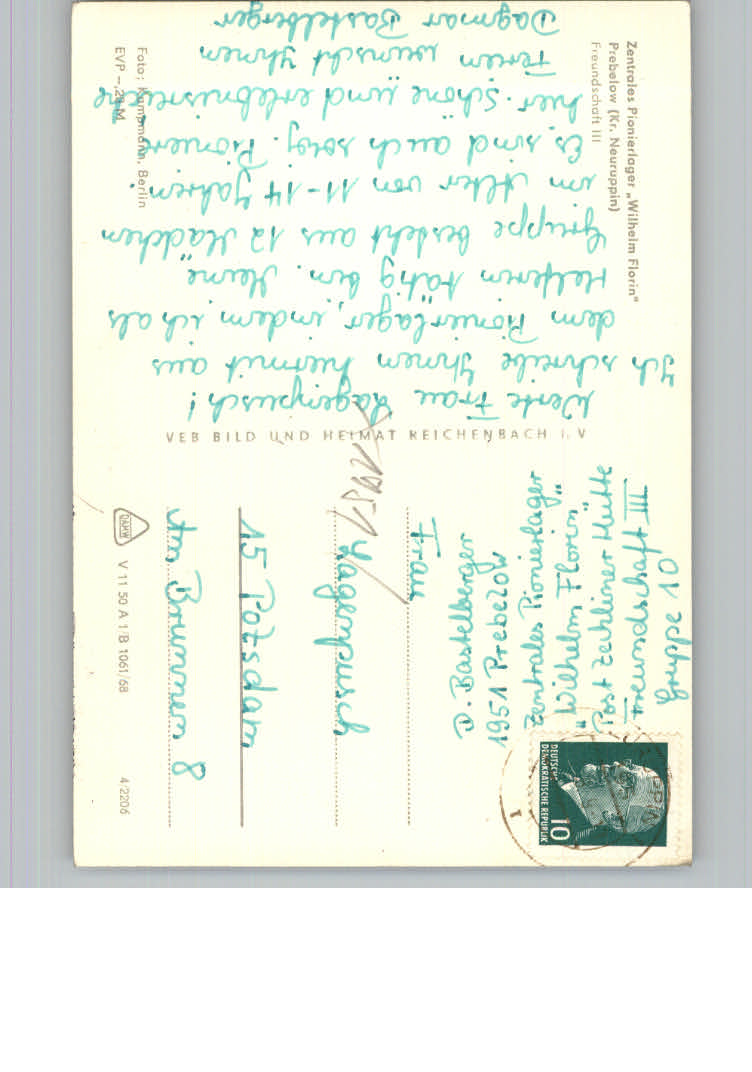 Zentrales Pionierlager „Wilhelm Florin"
Prebelow (Kr. Neuruppin)
Freundschaft III
Werte Frau Lagenpusch!
Ich schreibe Ihnen hiermit aus
dem Pionierlager, indem ich als
Helferin tätig bin. Meine
Gruppe besteht aus 12 Mädchen
im Alter von 11-14 Jahren.
Es sind auch sorg. Pioniere
hier. Schöne und erlebnisreiche
Ferien wünscht Ihnen
Dagmar Bastelberger
Foto: Krampmann, Berlin
EVP -,20 M
VEB BILD UND HEIMAT REICHENBACH i. V
D. Bastelberger
1951 Prebelow
Zentrales Pionierlager
"Wilhelm Florin"
Post Zechliner Hütte
Freundschaft III
Gruppe 10
DEUTSCHE
DEMOKRATISCHE REPUBLIK
10
Frau
Lagenpusch
15 Potsdam
Am Brunnen 8
DAMW
V 11 50 A 1/B 1061/68
4/2206